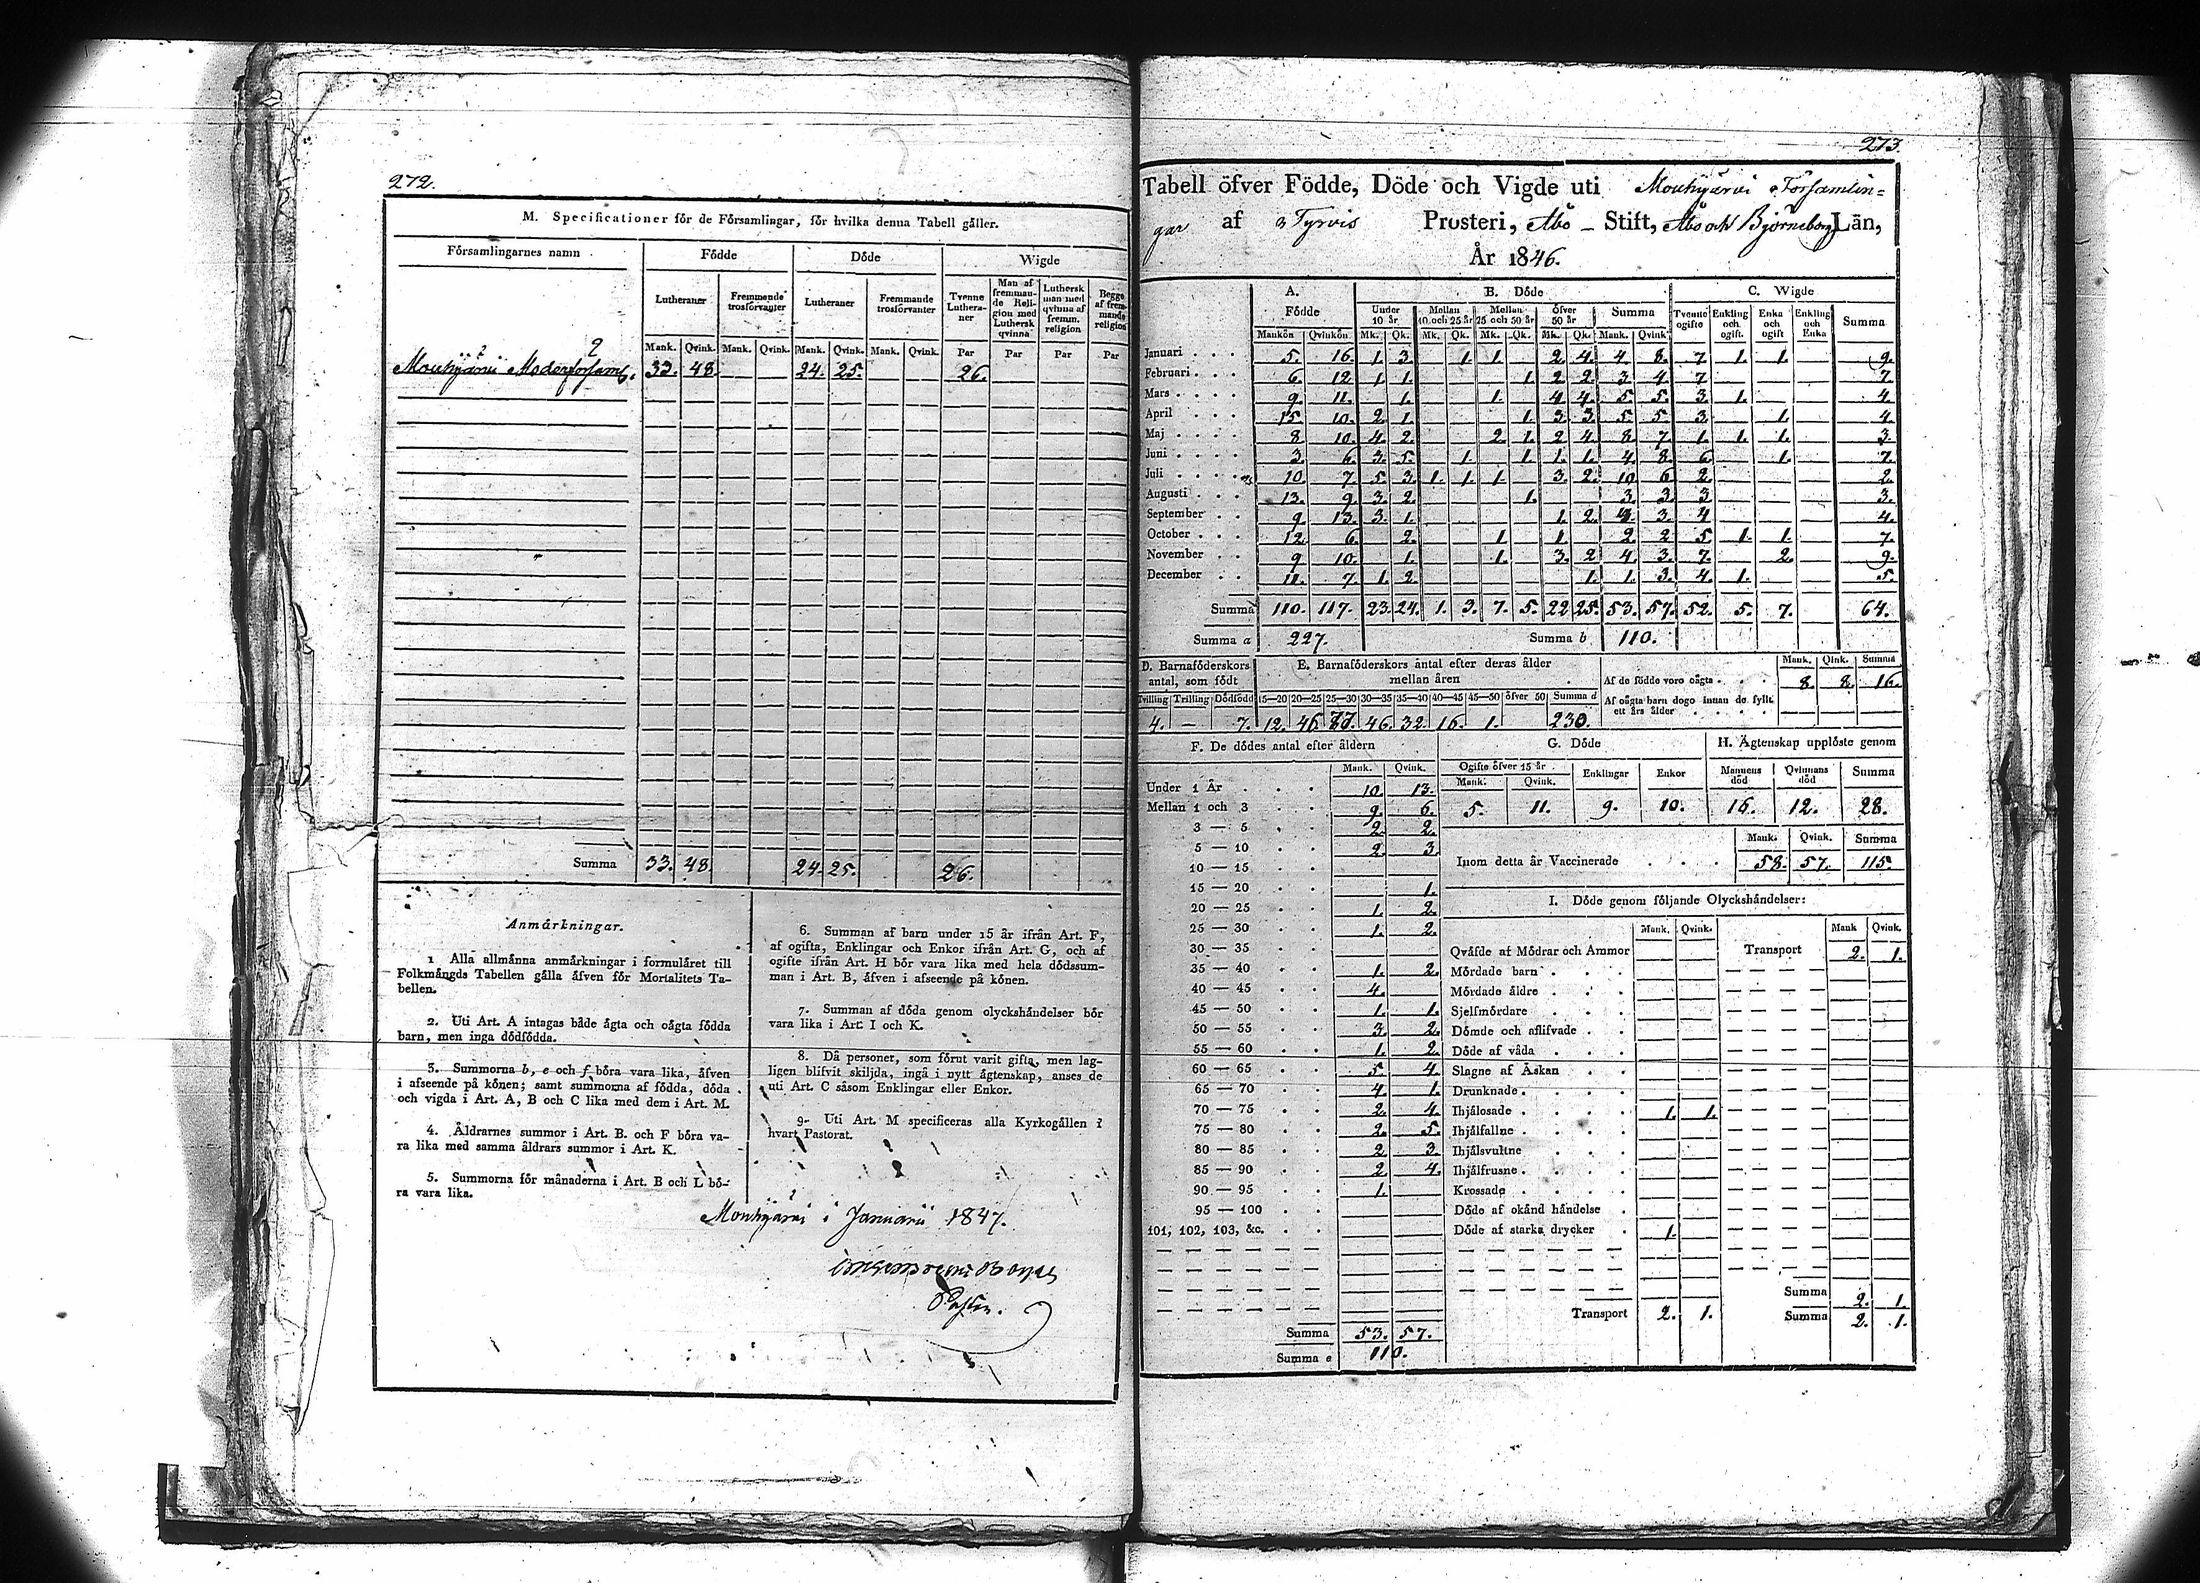 272.
M. Specificationer för de Församlingar, för hvilka denna Tabell gäller.
Församlingarnes namn
Födde
Döde
Wigde
Lutheraner
Fremmande trosförvanter
Lutheraner
Fremmande trosförvanter
Tvenne Lutheraner
Man af fremmande Religion med Luthersk qvinna
Luthersk man med qvinna af fremm. religion
Begge af fremmande religion
Mank. Qvink. Mank. Qvink. Mank. Qvink. Mank. Qvink. Par Par Par Par
Mouhijärvi Moderförsaml. 33. 48. 24. 25. 26.
Summa 33. 48. 24. 25. 26.
Anmärkningar.
1 Alla allmänna anmärkningar i formuläret till
Folkmängds Tabellen gälla äfven för Mortalitets Ta-
bellen.
2. Uti Art. A intagas både ägta och oägta födda
barn, men inga dödfödda.
3. Summorna b, e och f böra vara lika, äfven
i afseende på könen; samt summorna af födda, döda
och vigda i Art. A, B och C lika med dem i Art. M.
4. Åldrarnes summor i Art. B. och F böra va-
ra lika med samma åldrars summor i Art. K.
5. Summorna för månaderna i Art. B och L bö-
ra vara lika.
6. Summan af barn under 15 år ifrån Art. F,
af ogifta, Enklingar och Enkor ifrån Art. G, och af
ogifte ifrån Art. H bör vara lika med hela dödssum-
man i Art. B, äfven i afseende på könen.
7. Summan af döda genom olyckshändelser bör
vara lika i Art. I och K.
8. Då personer, som förut varit gifta, men lag-
ligen blifvit skiljda, ingå i nytt ägtenskap, anses de
uti Art. C såsom Enklingar eller Enkor.
9. Uti Art. M specificeras alla Kyrkogällen i
hvart Pastorat.
Mouhijärvi i Januarii 1847.
Pastor.
273.
Tabell öfver Födde, Döde och Vigde uti Mouhijärvi Församlin-
gar af Tyrvis Prosteri, Åbo Stift, Åbo och Björneborgs Län,
År 1846.
A. Födde
B. Döde
C. Wigde
Under 10 år
Mellan 10 och 25 år
Mellan 25 och 50 år
öfver 50 år
Summa
Tvenne ogifte
Enkling och ogift.
Enka och ogift
Enkling och Enka
Summa
Mankön Qvinkön Mk. Qk. Mk. Qk. Mk. Qk. Mk. Qk. Mank. Qvink.
Januari 5. 16. 1. 3. 1. 1. 2. 4. 4. 8. 7. 1. 1. 9.
Februari 6. 12. 1. 1. 1. 2. 2. 3. 4. 7. 7.
Mars 9. 11. 1. 1. 4. 4. 5. 5. 3. 1. 4.
April 15. 10. 2. 1. 1. 3. 3. 5. 5. 3. 1. 4.
Maj 8. 10. 4. 2. 2. 1. 2. 4. 8. 7. 1. 1. 1. 3.
Juni 3. 6. 3. 5. 1. 1. 1. 1. 4. 8. 6. 1. 7.
Juli 10. 7. 5. 3. 1. 1. 1. 3. 2. 10. 6. 2. 2.
Augusti 13. 9. 3. 2. 1. 3. 3. 3. 3.
September 9. 13. 3. 1. 1. 2. 4. 3. 4. 4.
October 12. 6. 2. 1. 1. 2. 2. 5. 1. 1. 7.
November 9. 10. 1. 1. 3. 2. 4. 3. 7. 2. 9.
December 11. 7. 1. 2. 1. 1. 3. 4. 1. 5.
Summa 110. 117. 23. 24. 1. 3. 7. 5. 22. 25. 53. 57. 52. 5. 7. 64.
Summa a 227. Summa b 110.
D. Barnaföderskors antal, som födt
E. Barnaföderskors antal efter deras ålder mellan åren
Mank. Qink. Summa
Af de födde voro oägta 8. 8. 16.
Af oägta barn dogo innan de fyllt ett års ålder
Tvilling Trilling Dödfödd 15—20 20—25 25—30 30—35 35—40 40—45 45—50 öfver 50 Summa d
4. — 7. 12. 46 77. 46. 32. 16. 1. 230.
F. De dödes antal efter åldern
Mank. Qvink.
Under 1 År 10. 13.
Mellan 1 och 3 9. 6.
3 — 5 2. 2.
5 — 10 2. 3.
10 — 15
15 — 20 1.
20 — 25 1. 2.
25 — 30 1. 2.
30 — 35
35 — 40 1. 2.
40 — 45 4.
45 — 50 1. 1.
50 — 55 3. 2.
55 — 60 1. 2.
60 — 65 5. 4.
65 — 70 4. 1.
70 — 75 2. 4.
75 — 80 2. 5.
80 — 85 2. 3.
85 — 90 2. 4.
90 — 95 1.
95 — 100
101, 102, 103, &c.
Summa 53. 57.
Summa e 110.
G. Döde
Ogifte öfver 15 år
Enklingar
Enkor
Mank. Qvink.
5. 11. 9. 10.
H. Ägtenskap upplöste genom
Mannens död
Qvinnans död
Summa
16. 12. 28.
Mank. Qvink. Summa
Inom detta år Vaccinerade 58. 57. 115.
I. Döde genom följande Olyckshändelser:
Mank. Qvink.
Qväfde af Mödrar och Ammor
Mördade barn
Mördade äldre
Sjelfmördare
Dömde och aflifvade
Döde af våda
Slagne af Åskan
Drunknade
Ihjälosade 1. 1.
Ihjälfallne
Ihjälsvultne
Ihjälfrusne
Krossade
Döde af okänd händelse
Döde af starka drycker 1.
Transport 2. 1.
Mank Qvink.
Transport 2. 1.
Summa 2. 1.
Summa 2. 1.